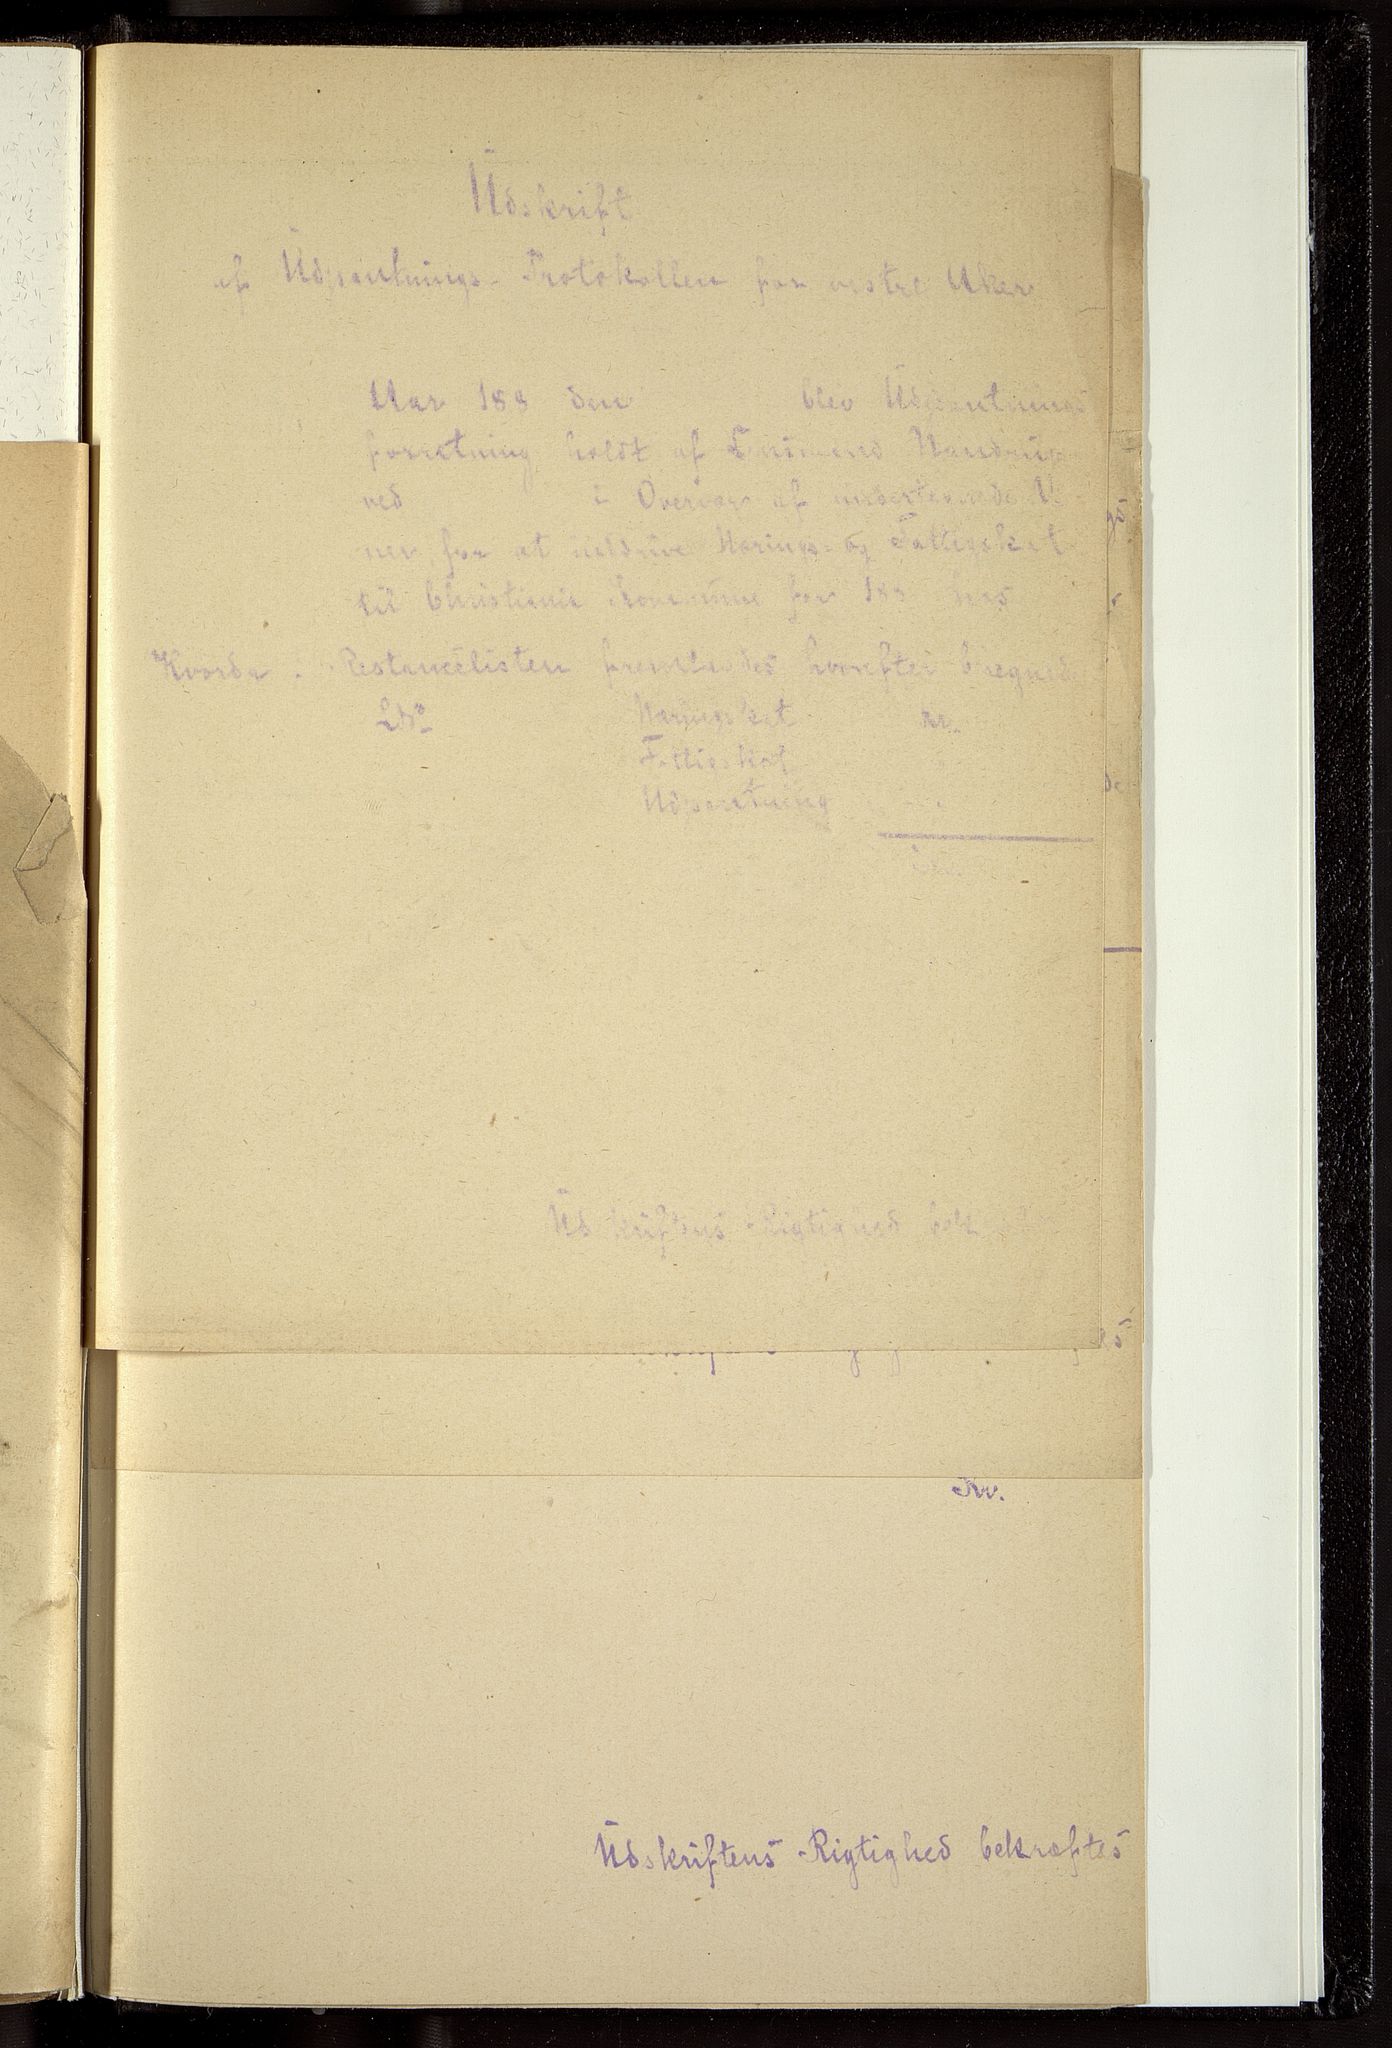 Udskrift
af Udpantnings-Protokollen for vestre Aker
Aar 188 den blev Udpantnings
forretning holdt af Lensmand
ved i Overvær af undertegnede
ner for at inddrive Nærings- og Fattigskat
til Christiania Kommune for 188 hos
Restancelisten fremlagdes hvorefter
Næringsskat Kr.
Fattigskat
Udpantning
Kr.
Udskriftens Rigtighed bek
Kr.
Udskriftens Rigtighed bekræftes